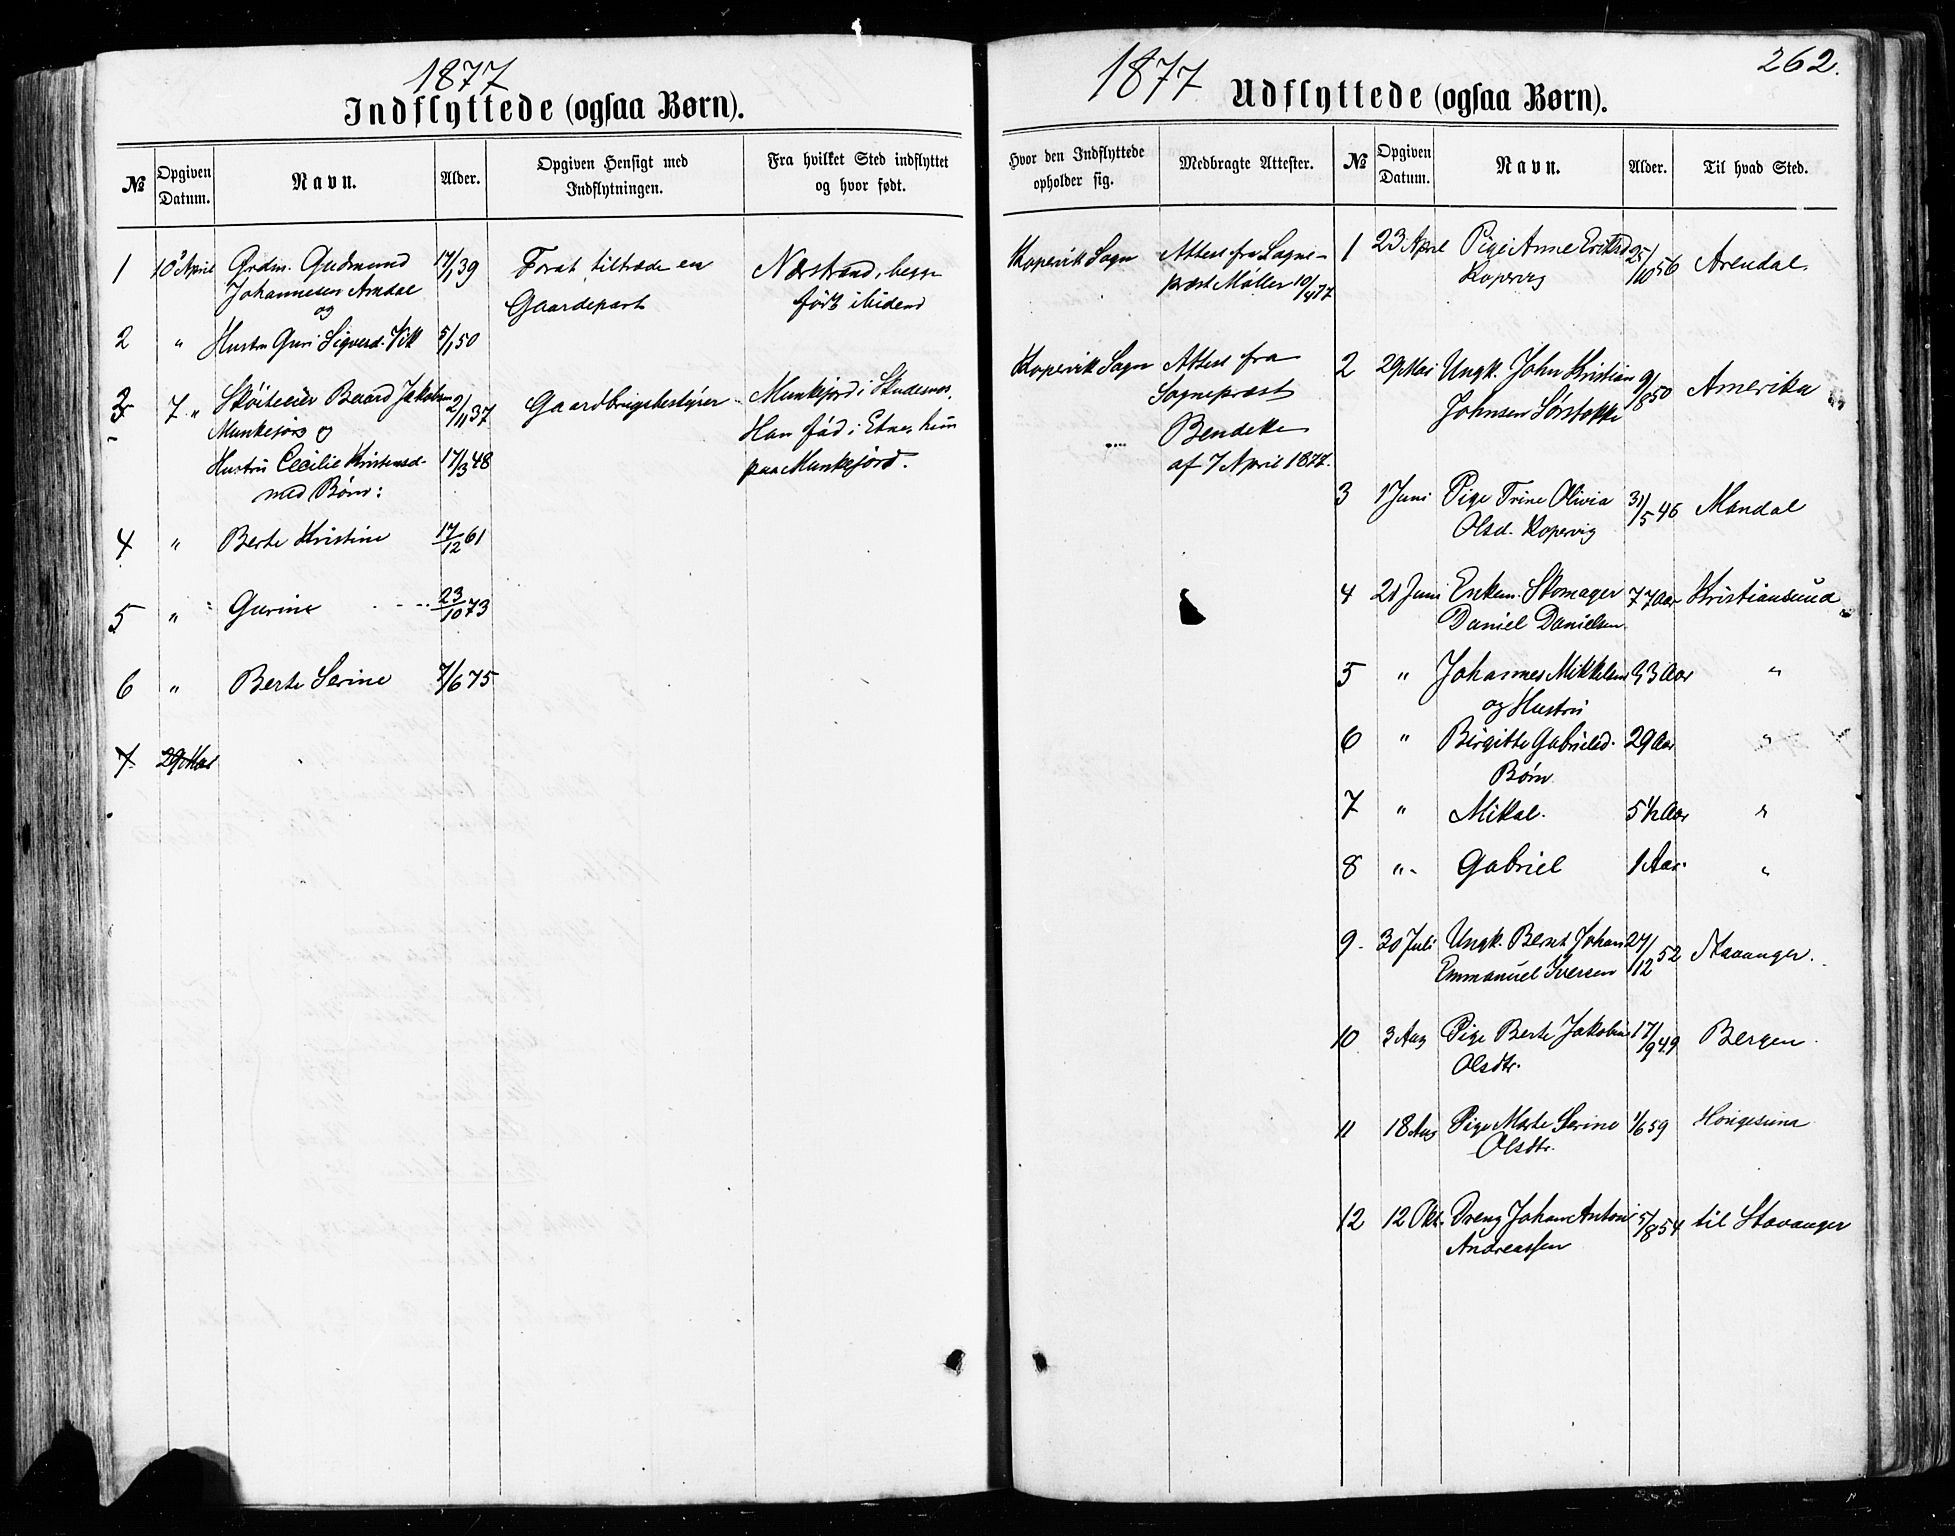 1877
Indflyttede (ogsaa Børn).
№
Opgiven Datum.
Navn.
Alder.
Opgiven Hensigt med Indflytningen.
Fra hvilket Sted indflyttet og hvor født.
1 10 April Grdm. Gudmund 17/1 39 For at tiltræde en Nærstrand, begge
Johannesen Amdal Gaardepart født ibidend
og
2 " Hustru Guri Sigversd. Vik 5/1 50
3 7 " Skøiteeier Baard Jakobsen 2/11 37 Gaardbrugsbestyrer Munkejord i Skudesnes.
Munkejord og Han fød i Etne, hun
Hustru Cecilie Kristensd. 17/3 48 paa Munkejord.
med Børn:
4 " Berte Kristine 17/12 61
5 " Gurine 23/10 73
6 " Berte Serine 7/6 75
7 29 Mai
1877
262.
Udflyttede (ogsaa Børn).
Hvor den Indflyttede opholder sig.
Medbragte Attester.
№
Opgiven Datum.
Navn.
Alder.
Til hvad Sted.
Kopervik Sogn Attest fra Sogne-
præst Møller 10/4 77
Kopervik Sogn Attest fra
Sognepræst
Bendeke
af 7 April 1877.
1 23 April Pige Anne Eriksd 25/10 56 Arendal
Kopervig
2 29 Mai Ungk. John Kristian 9/8 50 Amerika
Johnsen Sørstokke
3 1 Juni Pige Trine Olivia 31/5 46 Mandal
Olsd. Kopervig
4 21 Juni Enkem. Skomager 77 Aar Kristiansund
Daniel Danielsen
5 " Johannes Mikkelsen 33 Aar "
og Hustru
6 " Birgitte Gabrielsd. 29 Aar "
Børn
7 " Mikal. 5 1/2 Aar "
8 " Gabriel 1 Aar. "
9 30 Juli Ungk. Bernt Johan 24/12 52 Stavanger.
Emmanuel Iversen
10 3 Aug Pige Berte Jakobine 17/9 49 Bergen
Olsdtr.
11 18 Aug Pige Marte Serine 1/6 59 Haugesund
Olsdtr.
12 12 Okt. Dreng Johan Anton 5/8 54 til Stavanger
Andreassen